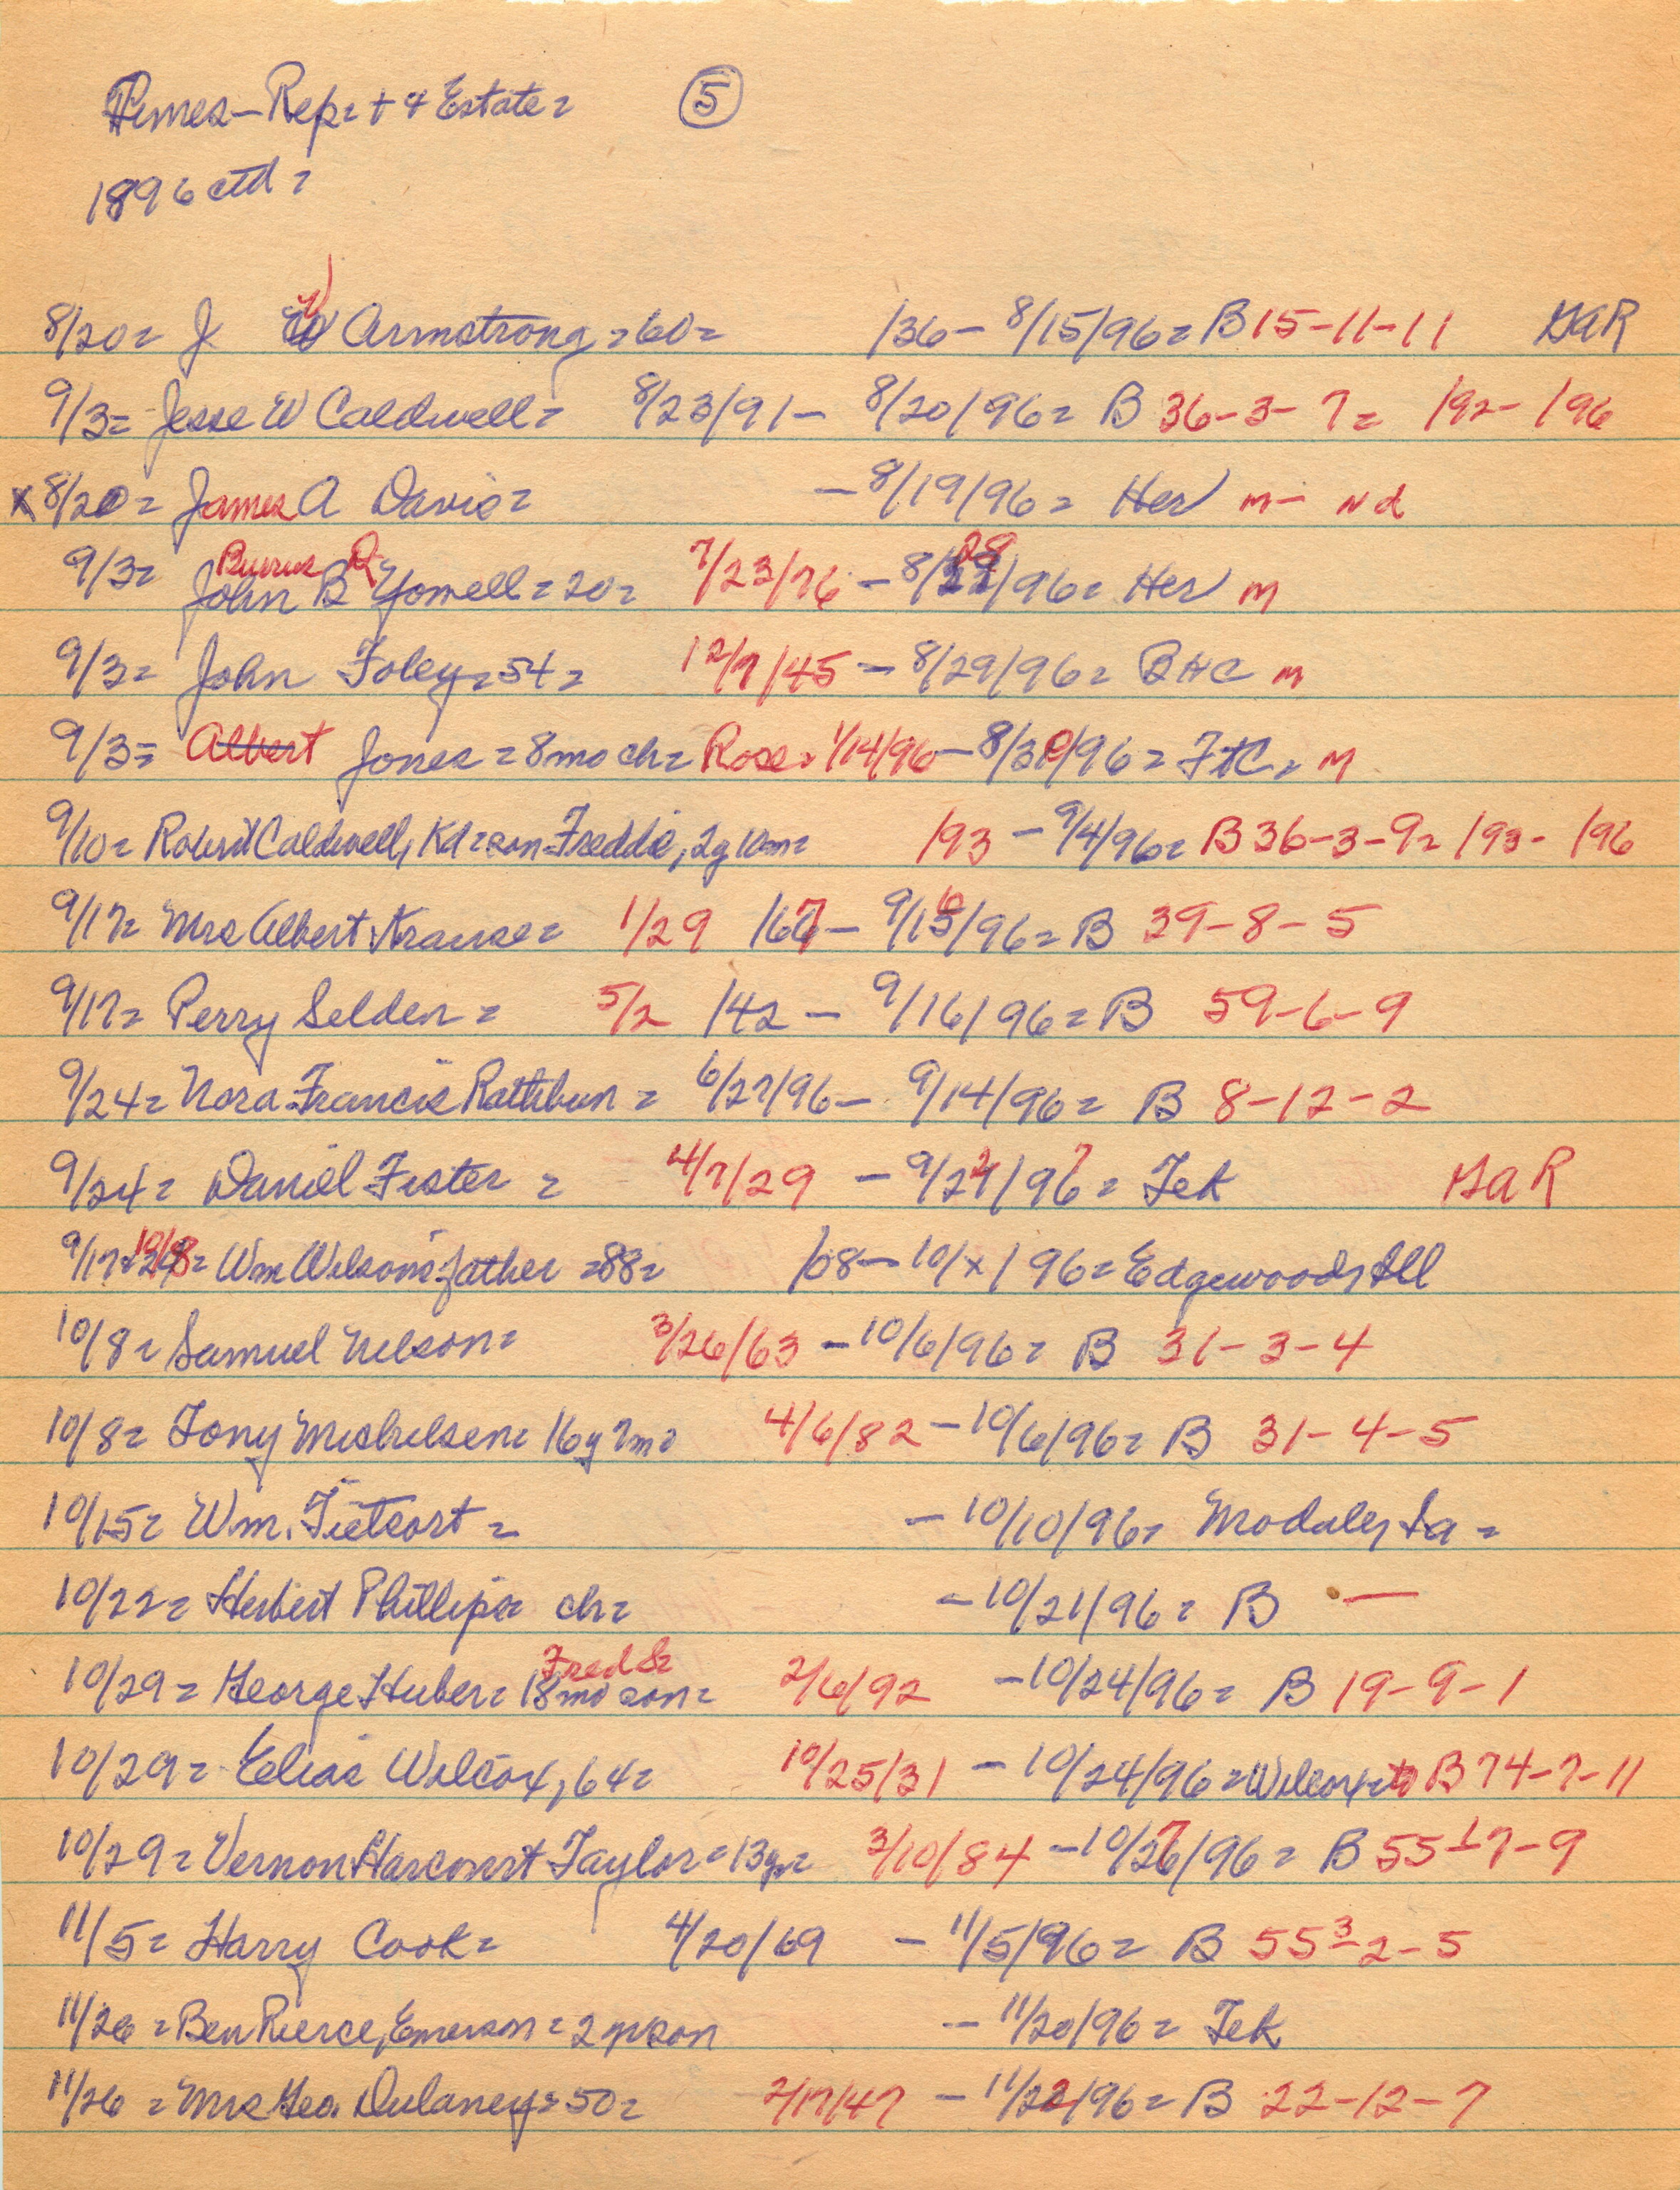 Times - Rep = + & Estate = (5)
1896 ctd =
8/20 = J W Armstrong = 60 = /36 - 8/15/96 = B 15-11-11 GAR
9/3 = Jesse W Caldwell = 8/23/91 - 8/20/96 = B 36-3-7 = /92 - /96
x 8/20 = James A Davis = - 8/19/96 = Her m - Nd
Burrus R 28
9/3 = John B Yowell = 20 = 7/23/76 - 8/27/96 = Her m
9/3 = John Foley = 54 = 12/7/45 - 8/29/96 = BHC m
9/3 = Albert Jones = 8 mo ch = Rose = 1/14/96 - 8/30/96 = FtC = m
9/10 = Robert Caldwell, Kd = son Freddie, 2y 10m = /93 - 9/4/96 = B 36-3-9 = /93 - /96
9/17 = Mrs Albert Krause = 1/29 /67 - 9/16/96 = B 39-8-5
9/17 = Perry Selden = 5/2 /42 - 9/16/96 = B 59-6-9
9/24 = Nora Francis Rathbun = 6/27/96 - 9/14/96 = B 8-12-2
9/24 = Daniel Fister = 4/7/29 - 9/22/97 = Tek GAR
9/17 = 10/8 = Wm Wilson's father = 88 = /08 - 10/x/96 = Edgewood, Ill
10/8 = Samuel Nelson = 3/26/63 - 10/6/96 = B 31-3-4
10/8 = Tony Mishelsen = 16y 7m = 4/6/82 - 10/6/96 = B 31-4-5
10/15 = Wm. Tietsort = - 10/10/96 = Modale, Ia =
10/22 = Herbert Phillips ch = - 10/21/96 = B —
Fred S =
10/29 = George Huber = 18 mo son = 2/6/92 - 10/24/96 = B 19-9-1
10/29 = Elias Wilcox, 64 = 10/25/31 - 10/24/96 = Wilcox = to B 74-7-11
10/29 = Vernon Harcourt Taylor = 13y = 3/10/84 - 10/27/96 = B 55 1-7-9
11/5 = Harry Cook = 4/20/69 - 11/5/96 = B 55 3-2-5
11/26 = Ben Pierce, Emerson = 2 yr son - 11/20/96 = Tek
11/26 = Mrs Geo. Dulaney = 50 = 2/17/47 - 11/22/96 = B 22-12-7